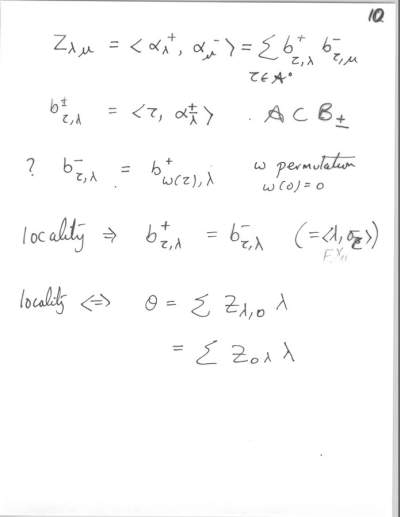 10
Z_{λμ} = ⟨α_λ^+, α_μ^-⟩ = Σ_{τ∈A°} b^+_{τ,λ} b^-_{τ,μ}
b^±_{τ,λ} = ⟨τ, α^±_λ⟩ . A ⊂ B_±
? b^-_{τ,λ} = b^+_{ω(τ),λ} ω permutation
ω(0) = 0
locality ⇒ b^+_{τ,λ} = b^-_{τ,λ} (=⟨λ, σ_τ⟩)
locality ⇔ θ = Σ Z_{λ,0} λ
= Σ Z_{0λ} λ